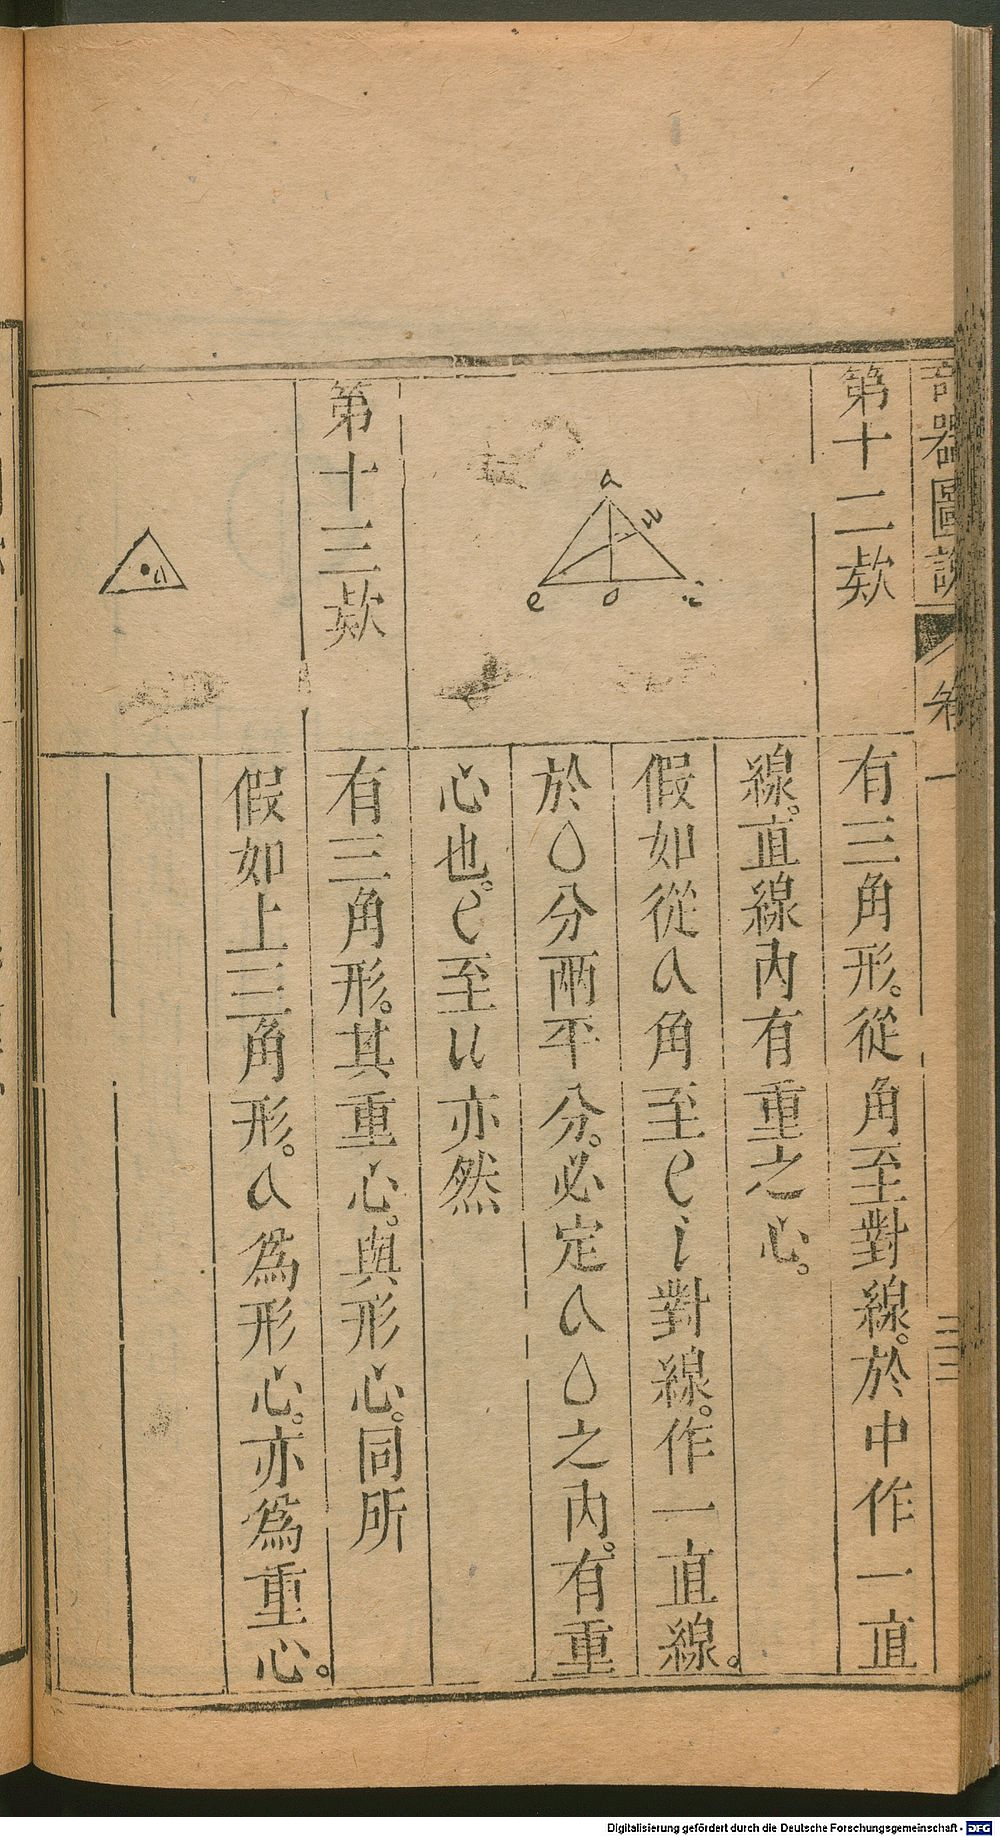 奇器圖說 卷一 三三
第十二欵
有三角形。從角至對線。於中作一直
線。直線內有重之心。
假如從a角至e i對線。作一直線。
於o分兩平分。必定a o之內。有重
心也。e至u亦然
a
u
e o i
第十三欵
有三角形。其重心。與形心。同所
假如上三角形。a爲形心。亦爲重心。
a
Digitalisierung gefördert durch die Deutsche Forschungsgemeinschaft - DFG